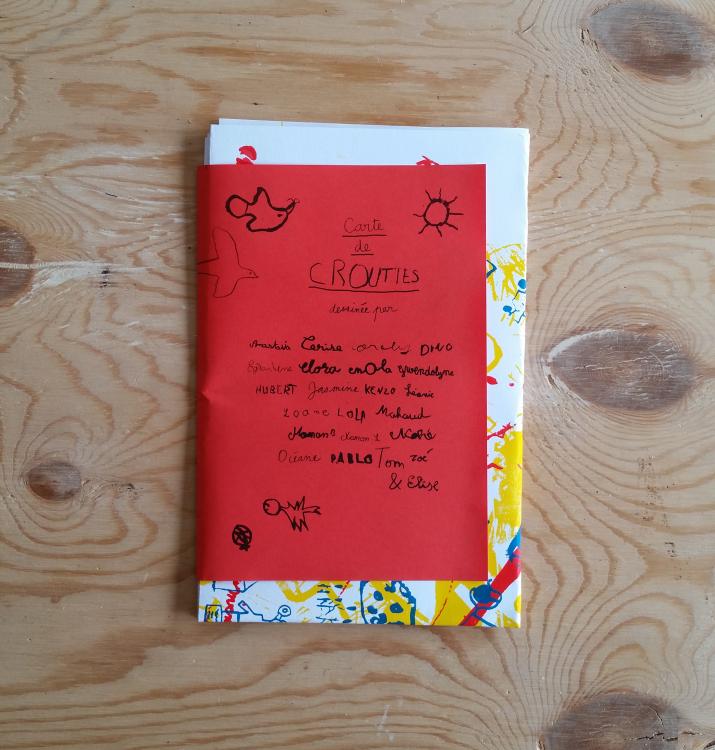 Carte
de
CROUTIES
dessinée par
Cerise DINO
elora enOla gwendolyne
HUBERT Jasmine KENZO Léonie
Loane LOLA Mahaud
Manon 2 Manon 1
Océane PABLO Tom zoé
& Elise